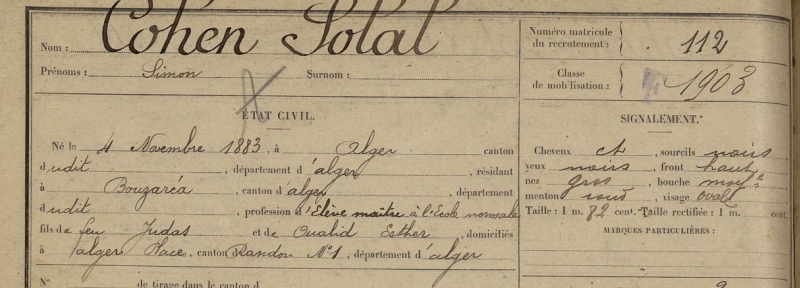 Nom : Cohen Solal
Prénoms : Simon Surnom :
ÉTAT CIVIL.
Né le 4 Novembre 1883, à Alger canton
dudit, département d'alger, résidant
à Bouzaréa, canton d'alger, département
dudit, profession d'Elève maître à l'Ecole normale
fils de feu Judas et de Oualid Esther, domiciliés
à alger Place, canton Randon N°1, département d'alger
N° de tirage dans le canton d
Numéro matricule
du recrutement : 112
Classe
de mobilisation : 1903
SIGNALEMENT.
Cheveux ch, sourcils noirs
yeux noirs, front haut
nez gros, bouche moy.e
menton rond, visage ovale
Taille : 1 m. 82 cent. Taille rectifiée : 1 m. cent.
MARQUES PARTICULIÈRES :